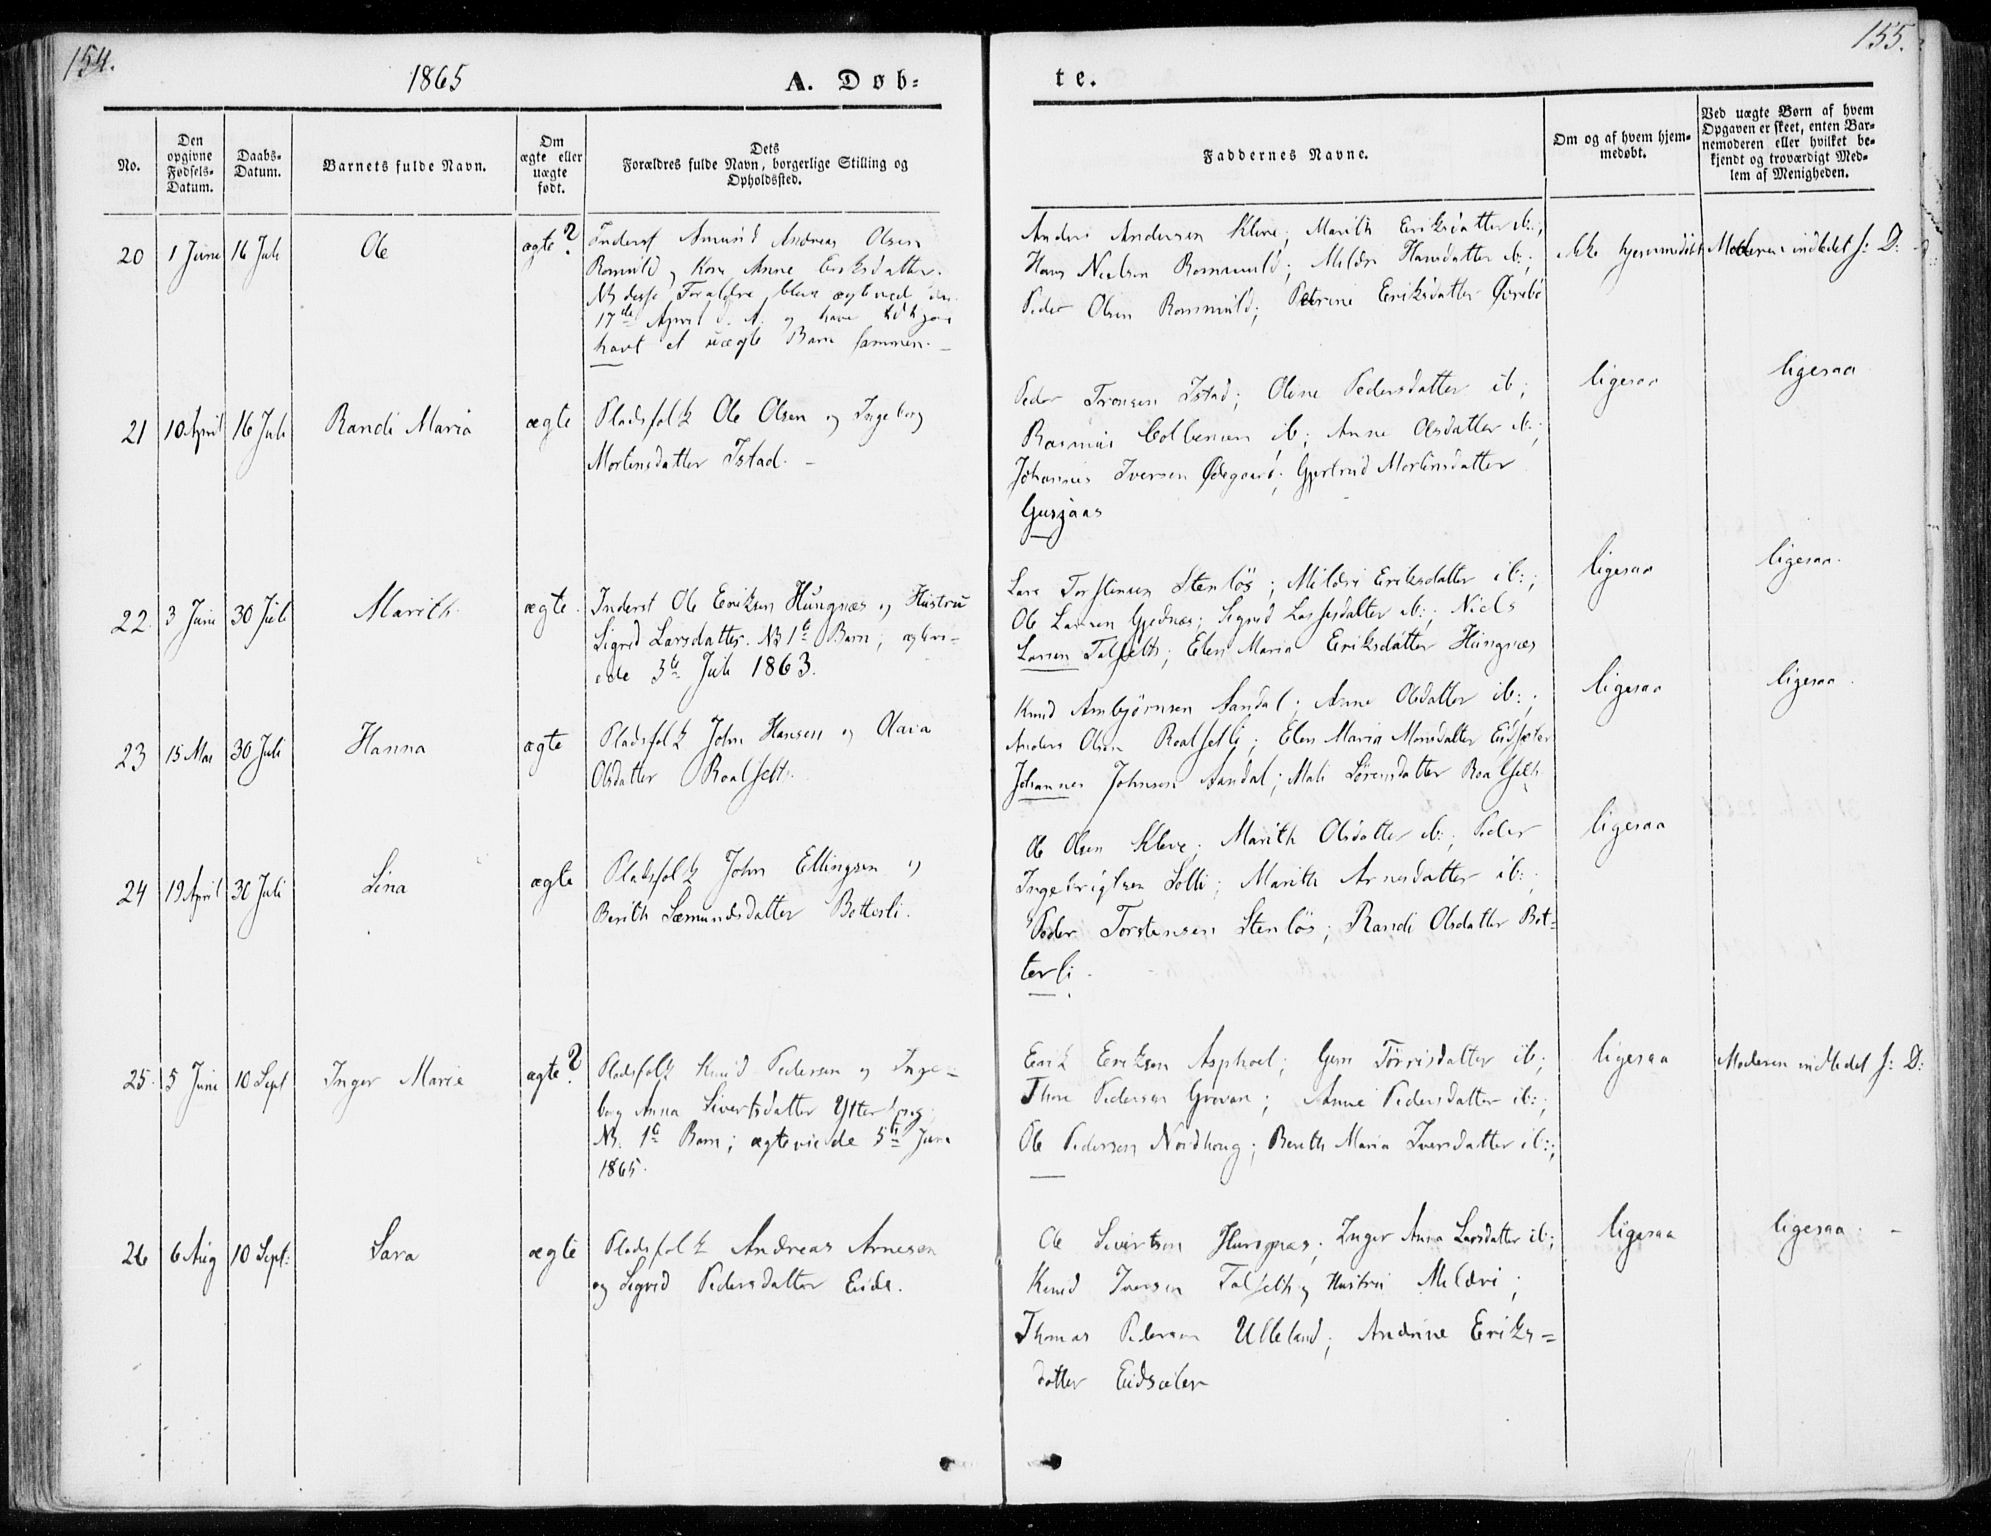 154.
155.
1865
A. Døb-
te.
No.
Den opgivne Fødsels-Datum.
Daabs-Datum.
Barnets fulde Navn.
Om ægte eller uægte født.
Dets Forældres fulde Navn, borgerlige Stilling og Opholdssted.
Faddernes Navne.
Om og af hvem hjemmedøbt.
Ved uægte Børn af hvem Opgaven er skeet, enten Barnemoderen eller hvilket bekjendt og troværdigt Medlem af Menigheden.
20
1 Juni
16 Juli
Ole
ægte?
Inderst Amund Andreas Olsen
Romuld og Kone Anne Eriksdatter.
NB disse Forældre bleve ægteviede den
17de April d. A. og have
havt et uægte Barn sammen. –
Anders Andersen Kleve; Marith Eriksdatter ib:;
Hans Nielsen Rommuld; Mildri Hansdatter ib:;
Peder Olsen Rommuld; Petrine Eriksdatter Øvrebø
ikke hjemmedøbt
Moderen indledet s: D:
21
10 April
16 Juli
Randi Maria
ægte
Pladsfolk Ole Olsen og Ingeborg
Mortensdatter Istad. –
Peder Tronsen Istad; Olene Pedersdatter ib;
Rasmus Colbensen ib; Anne Olsdatter ib:;
Johannes Iversen Ødegaard; Gjertrud Mortensdatter
Gusjaas
ligesaa
ligesaa
22.
3 Juni
30 Juli
Marith
ægte.
Inderst Ole Eriksen Hungnæs og Hustru
Sigrid Larsdatter. NB 1te Barn; ægtevi-
ede 3de Juli 1863.
Lars Torstensen Stenløs; Mildri Eriksdatter ib:;
Ole Larsen Gjednæs; Sigrid Lassesdatter ib:; Niels
Larsen Talseth; Elen Maria Eriksdatter Hungnæs
ligesaa
ligesaa.
23
15 Mai
30 Juli
Hanna
ægte
Pladsfolk John Hansen og Olava
Olsdatter Roalseth.
Knud Ambjørnsen Sandal; Anne Olsdatter ib:;
Anders Olsen Roalsetli; Elen Maria Monsdatter Eidsæter
Johannes Johnsen Sandal; Mali Sørensdatter Roalseth
ligesaa
ligesaa.
24
19 April
30 Juli
Lina
ægte
Pladsfolk John Ellingsen og
Berith Sæmundsdatter Botterli.
Ole Olsen Kleve; Marith Olsdatter ib:; Peder
Ingebrigtsen Solli; Marith Arnesdatter ib:;
Peder Torstensen Stenløs; Randi Olsdatter Bot-
terli.
ligesaa
25.
5 Juni
10 Sept
Inger Marie
ægte?
Pladsfolk Knud Pedersen og Inge-
borg Anna Sivertsdatter Ytter
NB. 1te Barn; ægteviede 5te Juni
1865.
Erik Eriksen Asphoel; Guru Tørrisdatter ib;
Thore Pedersen Grovan; Anne Pedersdatter ib:;
Ole Pedersen Nordhoug; Berith Maria Iversdatter ib:;
ligesaa
Moderen indledet s: D:
26
6 Aug
10 Sept:
Sara
ægte
Pladsfolk Andreas Arnesen
og Sigrid Pedersdatter Eide.
Ole Sivertsen Hungnæs; Inger Anna Larsdatter ib;
Knud Iversen Talseth og Hustru Mildri;
Thomas Pedersen Ulleland; Andrine Eriks-
datter Eidsæter
ligesaa
ligesaa. –